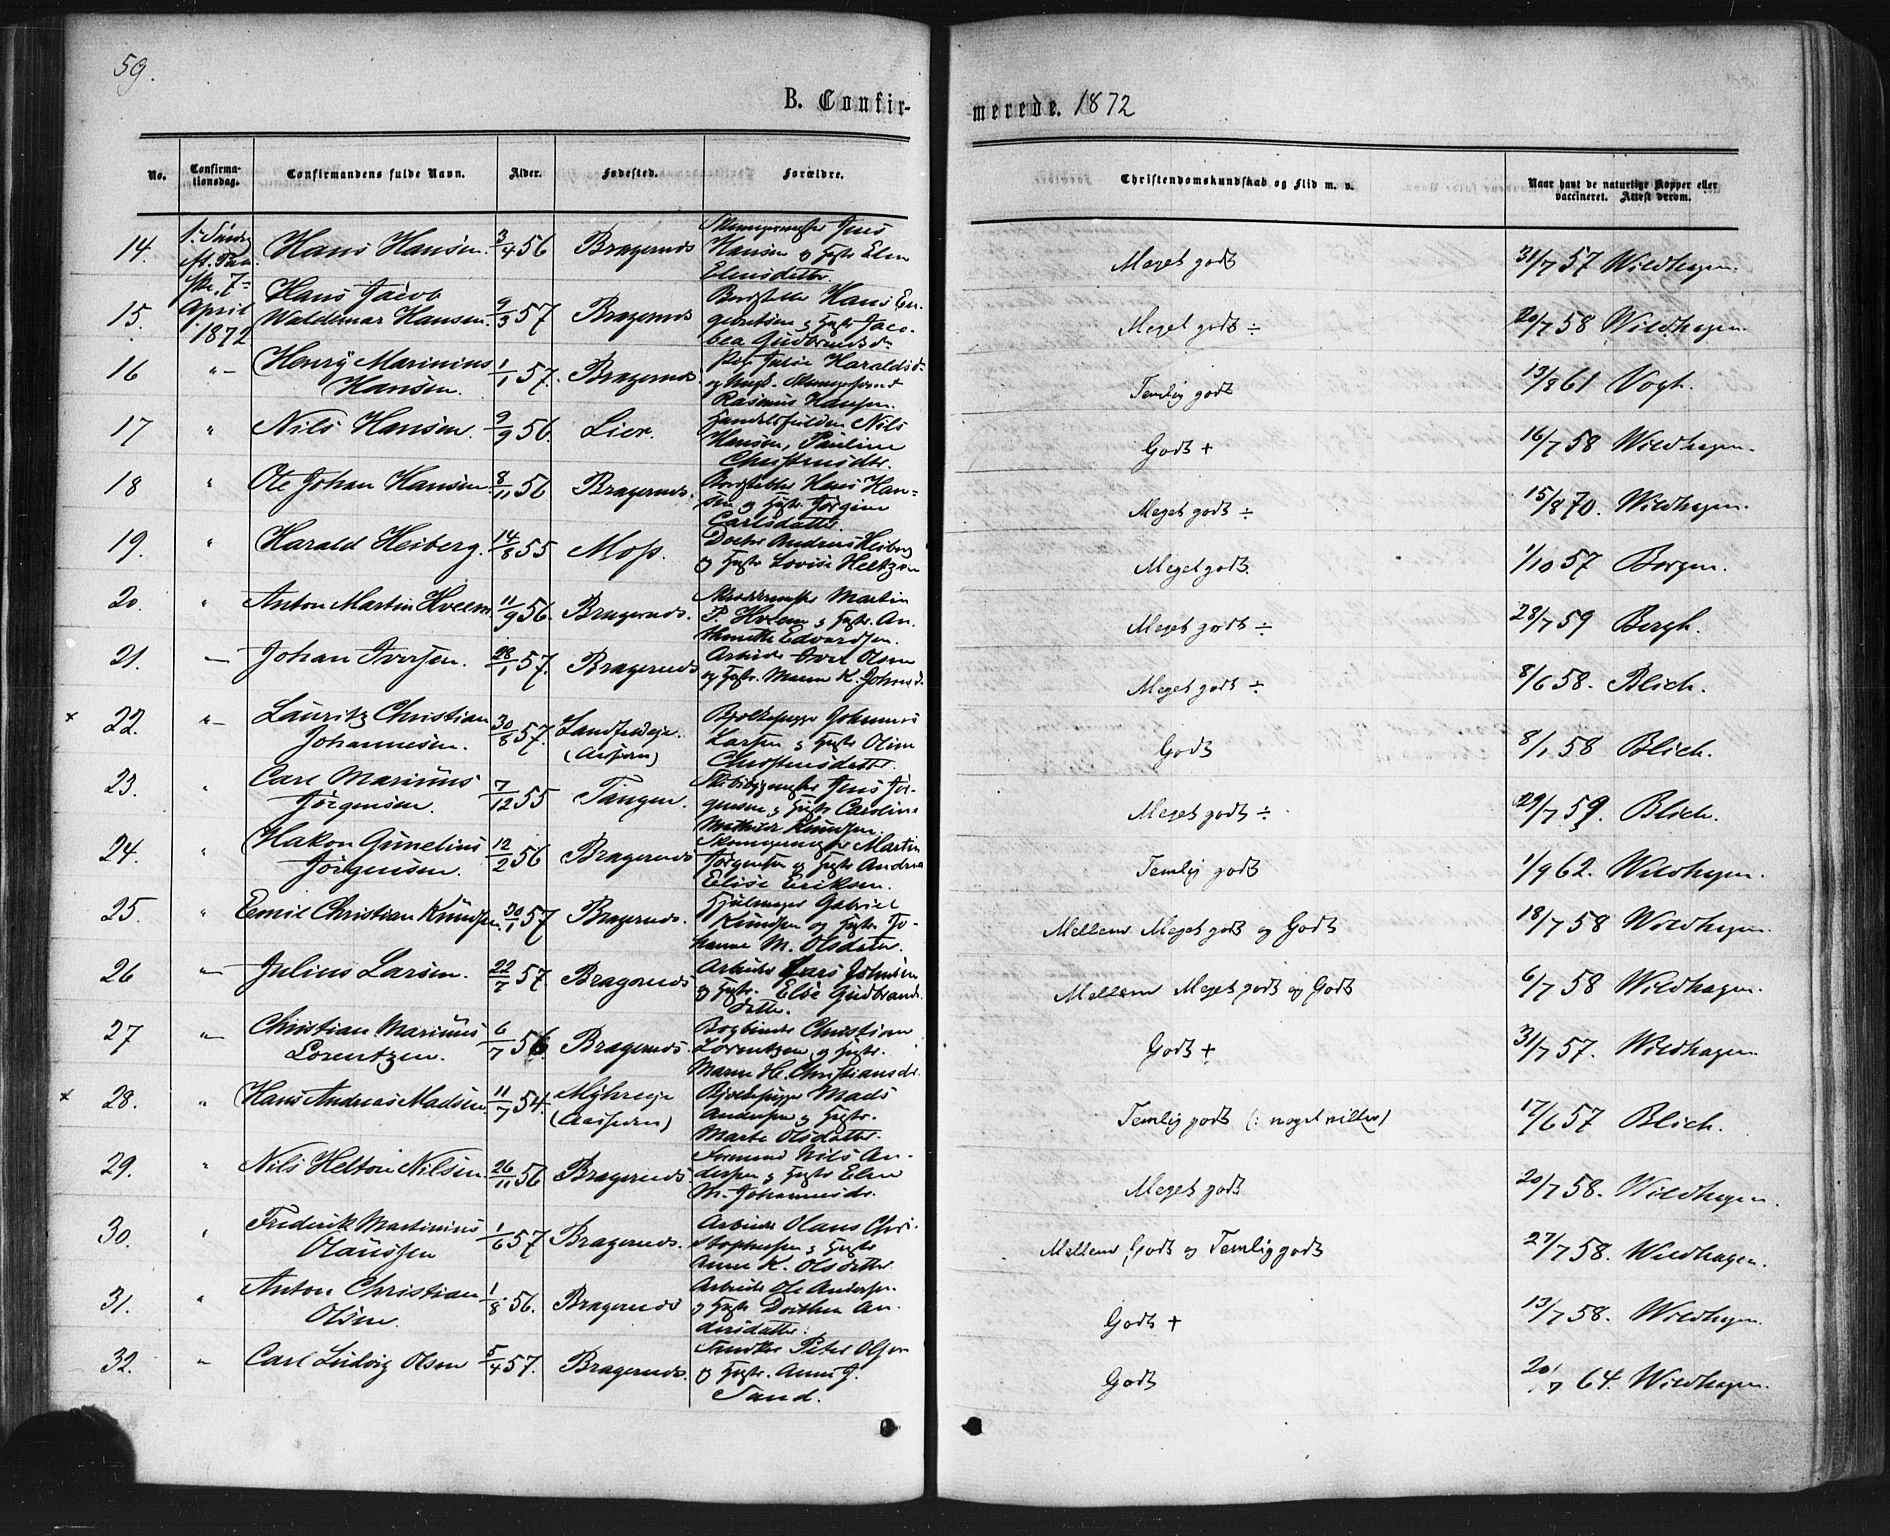 59.
B. Confirmerede. 1872
No. Confirmationsdag. Confirmandens fulde Navn. Alder. Fødested. Forældre. Christendomskundskab og Flid m. v. Naar havt de naturlige Kopper eller vaccineret. Attest derom.
14. 1ste Søndag eft. Paaske, 7de April 1872 Hans Hansen. 3/4 56 Bragernes Jens Hansen og Hustr Elen Elensdatter Meget godt 31/7 57 Wildhagen.
15. Hans Jacob Waldemar Hansen. 9/3 57 Bragernes Hans Engebretsen og Hustr Jacobea Gudbrandsdr Meget godt ÷ 20/7 58 Wildhagen.
16 "— Henry Marinius Hansen. 1/1 57. Bragernes Pige Julie Haraldsd. og Rasmus Hansen. Temlig godt 13/8 61 Vogt.
17 " Nils Hansen. 9/9 56. Lier. Nils Hansen, Pauline Christensdtr. Godt + 16/7 58 Wildhagen.
18 " Ole Johan Hansen. 8/11 56 Bragernes. Hans Hansen og Hustr Jørgine Carlsdatter. Meget godt ÷ 15/8 70. Wildhagen.
19. " Harald Heiberg. 14/8 55 Moss. Doctor Andreas Heiberg og Hustr Lovise Heltzen Meget godt. 1/10 57 Borgen.
20. " Anton Martin Hveem 11/9 56. Bragernes. Martin P. Hveem og Hustr. Anthonette Edvardsen. Meget godt ÷ 28/7 59 Bergh.
21. — Johan Iversen. 28/1 57. Bragernes Arbeider Iver Olsen og Hustr. Maren K. Johnsd. Meget godt ÷ 8/6 58. Blich.
× 22. "— Lauritz Christian Johannesen. 30/8 57. (Aassiden) Johannes Larsen og Hustr Oline Christensdatter. Godt 8/1 58 Blich.
23. " Carl Marinus Jørgensen. 7/12 55 Tangen. Skibsbygmester Jens Jørgensen og Hustr Caroline Mathilde Knudsen. Meget godt ÷ 29/7 59. Blich.
24. " Hakon Gunelius Jørgensen. 12/2 56 Bragernes Skomagermester Martin Jørgensen og Hustr Andrea Elise Eriksen. Temlig godt 1/9 62. Wildhagen.
25. " Emil Christian Knudsen. 30/1 57 Bragernes. Hjulmager Gabriel Knudsen og Hustr Johanne M. Olsdatter. Mellem Meget godt og Godt 18/7 58 Wildhagen.
26 "— Julius Larsen. 22/7 57. Bragernes Arbeider Lars Johnsen og Hustr. Else Gudbrandsdatter. Mellem Meget godt og Godt 6/7 58 Wildhagen.
27 "— Christian Marinus Lorentzen. 6/7 56 Bragernes. Bogbinder Christian Lorentzen og Hustr. Maren H. Christiansdr. Godt + 31/7 57. Wildhagen
× 28. " Hans Andreas Madsen. 11/7 54. (Aassiden) Mads Andersen og Hustr. Marte Olsdatter. Temlig godt (: noget vild :) 17/6 57 Blich.
29. " Nils Helton Nilsen. 26/11 56 Bragernes Formand Nils Andersen og Hustr Elen M. Johannesdr. Meget godt 20/7 58. Wildhagen.
30. " Frederik Martinius Olaussen 1/6 57 Bragernes. Arbeider Olaus Christophersen og Hustr Anne K. Olsdatter. Mellem Godt og Temlig godt 27/7 58. Wildhagen.
31. " Anton Christian Olsen. 1/8 56. Bragernes Arbeider Ole Andersen og Hustr Dorthea Andersdatter. Godt + 13/7 58. Wildhagen.
32. " Carl Ludvig Olsen 5/4 57. Bragernes. Snedker Peter Olsen og Hustr. Anne J. Sand. Godt 20/7 64. Wildhagen.